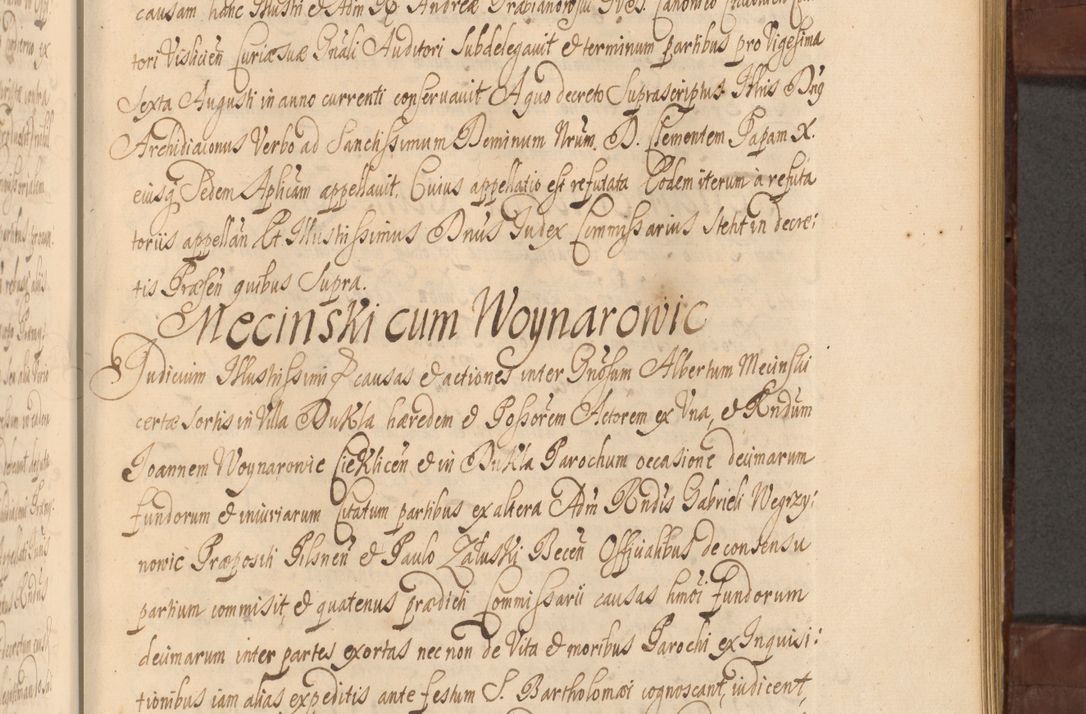 causam hanc Illustri et Adm R. Andreæ
tori Vislicien Curiæ suæ Gnali Auditori subdelegavit et terminum partibus pro Vigesima
sexta Augusti in anno currenti conservavit A quo decreto Suprascriptus Illris Dng
Archidiaconus Verbo ad Sanctissimum Dominum Nrum D. Clementem Papam X.
eiusq Sedem Aplicam appellavit. Cuius appellatio est refutata Eodem iterum à refuta
toriis appellan Et Illustrissimus Dnus Judex Commissarius stetit in decre:
tis Præsen quibus Supra.
Mecinski cum Woynarowic
Judicium Illustrissimi causas et actiones inter Gnosum Albertum Mecinski
certæ sortis in Villa Dukla hæredem et Possorem Actorem ex Una, et Rndum
Joannem Woynarowic Cieklicen et in Dukla Parochum occasione decimarum
fundorum et iniuriarum Citatum partibus ex altera Adm Rndis Gabrieli Wegrzy:
nowic Præposití Pilsnen et Paulo Załuski Becen Officialibus de consensu
partium commisit, et quatenus prædicti Commissarii causas hmoi fundorum
decimarum inter partes exortas nec non de Vita et moribus Parochi ex Inquisi:
tionibus iam alias expeditis ante festum S. Bartholomæi cognoscant, iudicent,